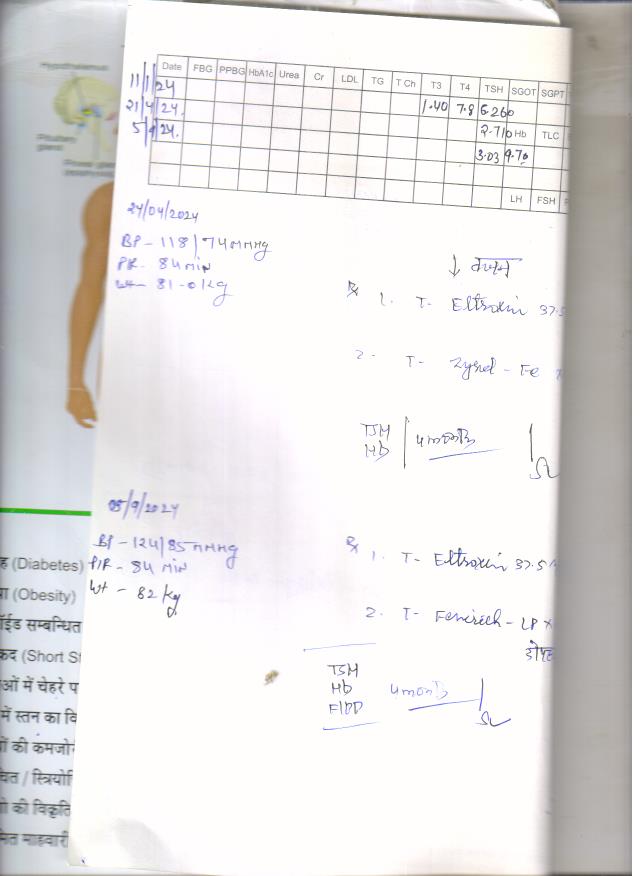 Hypothalamus
Pituitary
gland
Pineal gland
Date FBG PPBG HbA1c Urea Cr LDL TG T Ch T3 T4 TSH SGOT SGPT
11/1/24 1.40 7.8 6.260
21/4/24. 2.710 Hb TLC
5/9/24. 3.03 9.70
LH FSH
24/04/2024
BP - 118/74 mmHg
PR- 84 min
Wt- 81.0 kg
Rx 1. T- Eltroxin 37.5
2. T- Fe
TSH
Hb 4 months
05/9/2024
BP - 124/85 mmHg
P/R - 84 min
Wt - 82 kg
Rx 1. T- Eltroxin 37.5
2. T- LP x
TSH
Hb 4 months
ह (Diabetes)
ा (Obesity)
ॉईड सम्बन्धित
कद (Short St
ओं में चेहरे प
में स्तन का वि
ों की कमजो
चित / स्त्रियोि
ो की विकृति
मित माहवारी